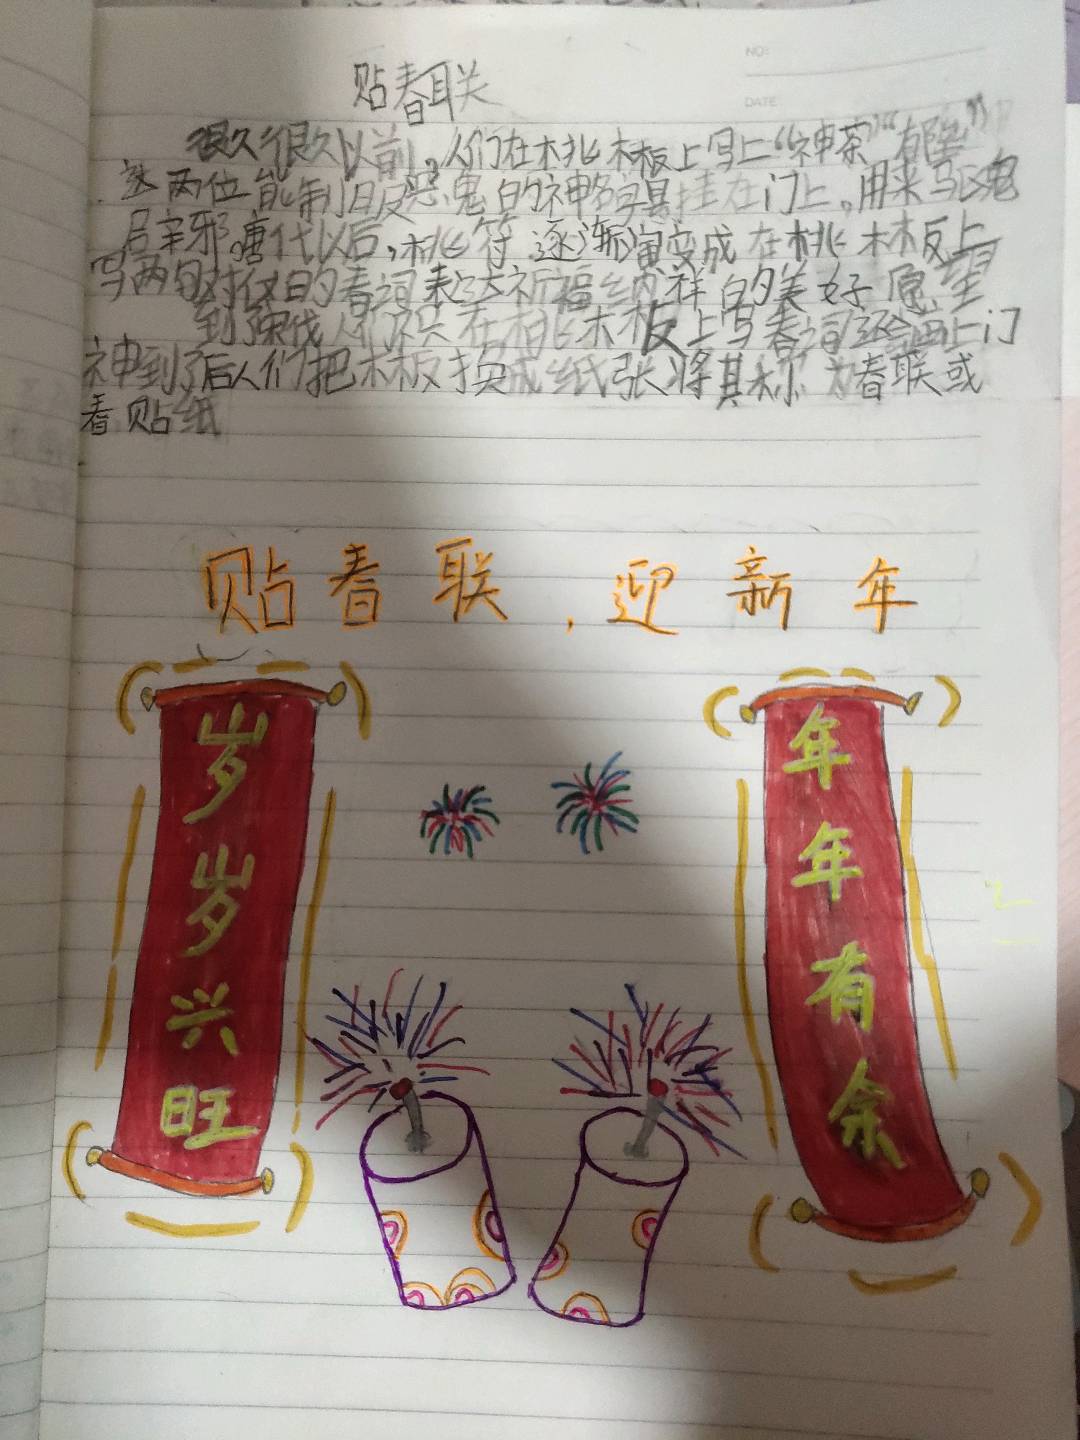 贴春联
NO:
DATE
很久很久以前，人们在桃木板上写上“神荼”“郁垒”
这两位能制服恶鬼的神名字具挂在门上。用来驱鬼
辟邪唐代以后，桃符逐渐演变成在桃木板上
写两句对仗的春词表达祈福纳祥的美好愿望
到代人们不只在桃木板上写春词还会画上门
神到了后人们把木板换成纸张将其称为春联或
春贴纸
贴春联，迎新年
岁岁兴旺
年年有余